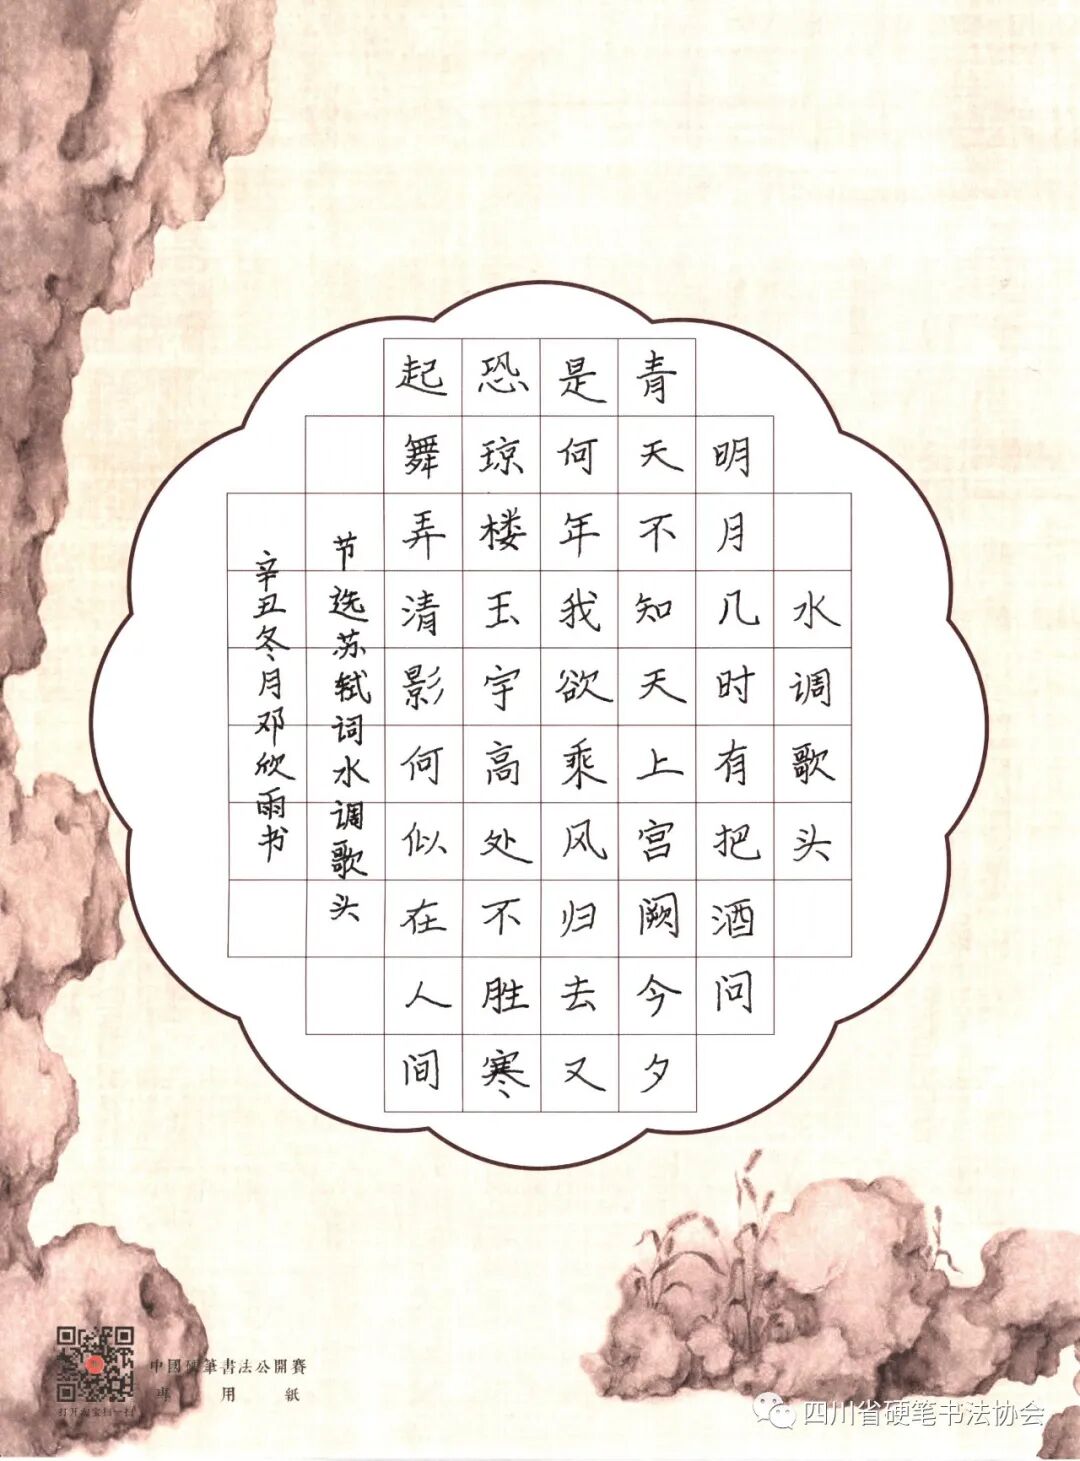 水调歌头
明月几时有把酒问
青天不知天上宫阙今夕
是何年我欲乘风归去又
恐琼楼玉宇高处不胜寒
起舞弄清影何似在人间
节选苏轼词水调歌头
辛丑冬月邓欣雨书
中國硬筆書法公開賽
專用紙
打开淘宝扫一扫
四川省硬笔书法协会